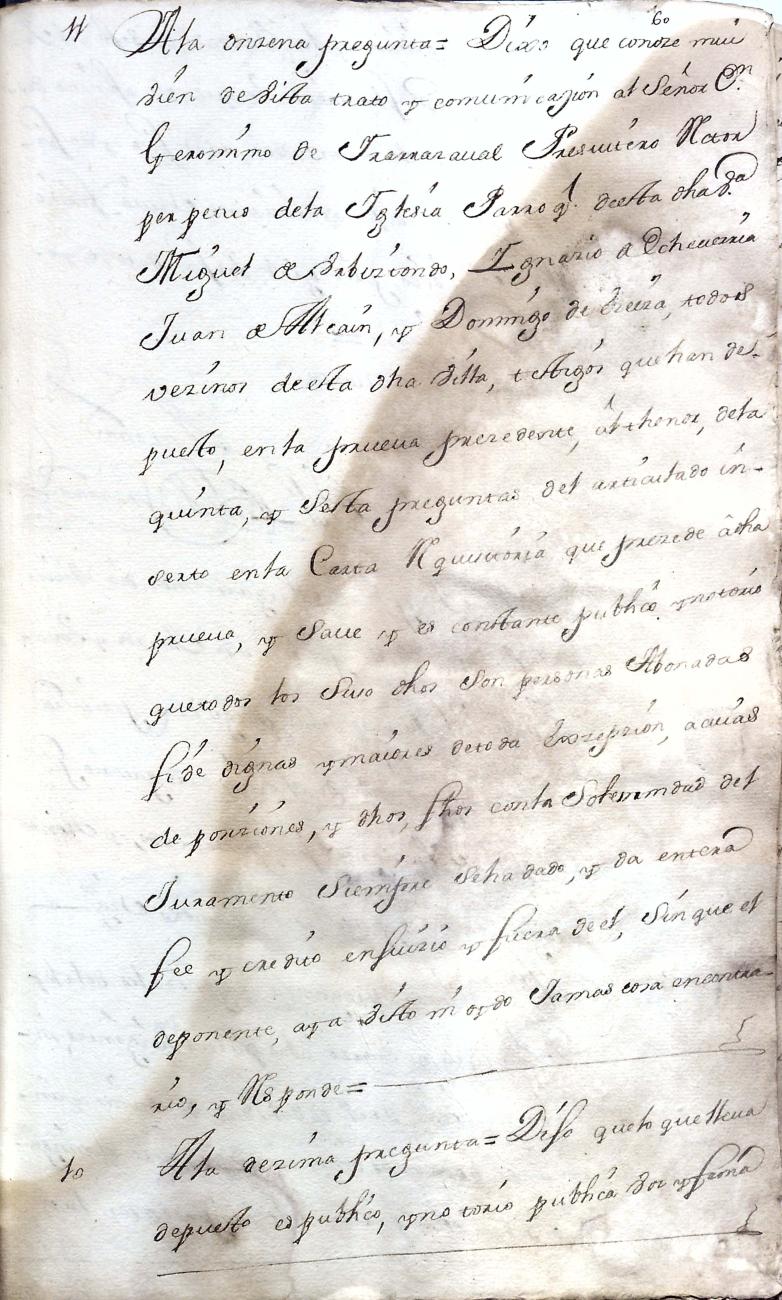 60
11 A la onzena pregunta = Dixo que conoze mui
bien de vista trato y comunicazion al Señor Dn
Geronimo de Irarrazaual Presuitero Rector
perpetuo dela Iglesia Parroql. de esta dha Va
Miguel de Vrbiztondo, Ignazio de Echeuerria
Juan de Alcain, y Domingo de, todos
vezinos de esta dha Villa, testigos que han de-
puesto, en la prueua prezedente, al thenor, dela
quinta, y Sesta preguntas del articulado in-
serto en la Carta Requisitoria que prezede â dha
prueua, y Saue y es constante publico y notorio
que todos los Suso dhos Son personas Abonadas
fide dignas y maiores de toda Exzepzion, a cuias
depoziziones, y dhos, fhos con la Solemnidad del
Juramento Siempre se ha dado, y da entera
fee y credito en Juizio y fuera de el, Sin que el
deponente, aya visto ni oydo Jamas cosa en contra-
rio, y Responde =
10 A la dezima pregunta = Diso que lo que lleua
depuesto es publico, y notorio publica voz y fama